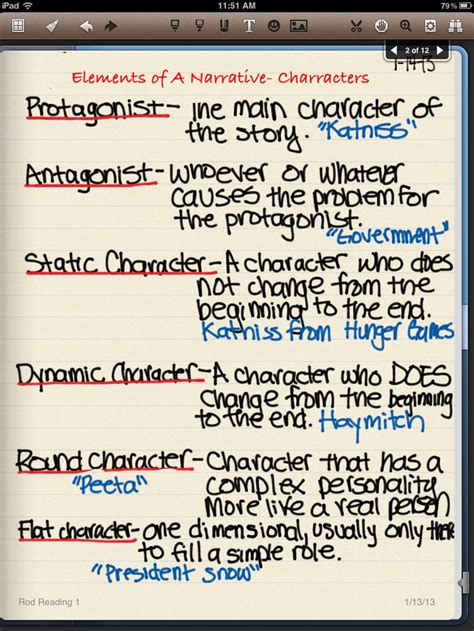 iPad 11:51 AM 79%
2 of 12
1-14-13
Elements of A Narrative- Charracters
Protagonist- The main character of
the story. "Katniss"
Antagonist- whoever or whatever
causes the problem for
the protagonist.
"Government"
Static Character- A character who does
not change from the
beginning to the end.
Katniss from Hunger Games
Dynamic Character- A character who DOES
change from the beginning
to the end. Haymitch
Round Character- Character that has a
"Peeta" complex personality
More live a real person
Flat character- one dimensional, usually only there
to fill a simple role.
"President Snow"
Rod Reading 1 1/13/13